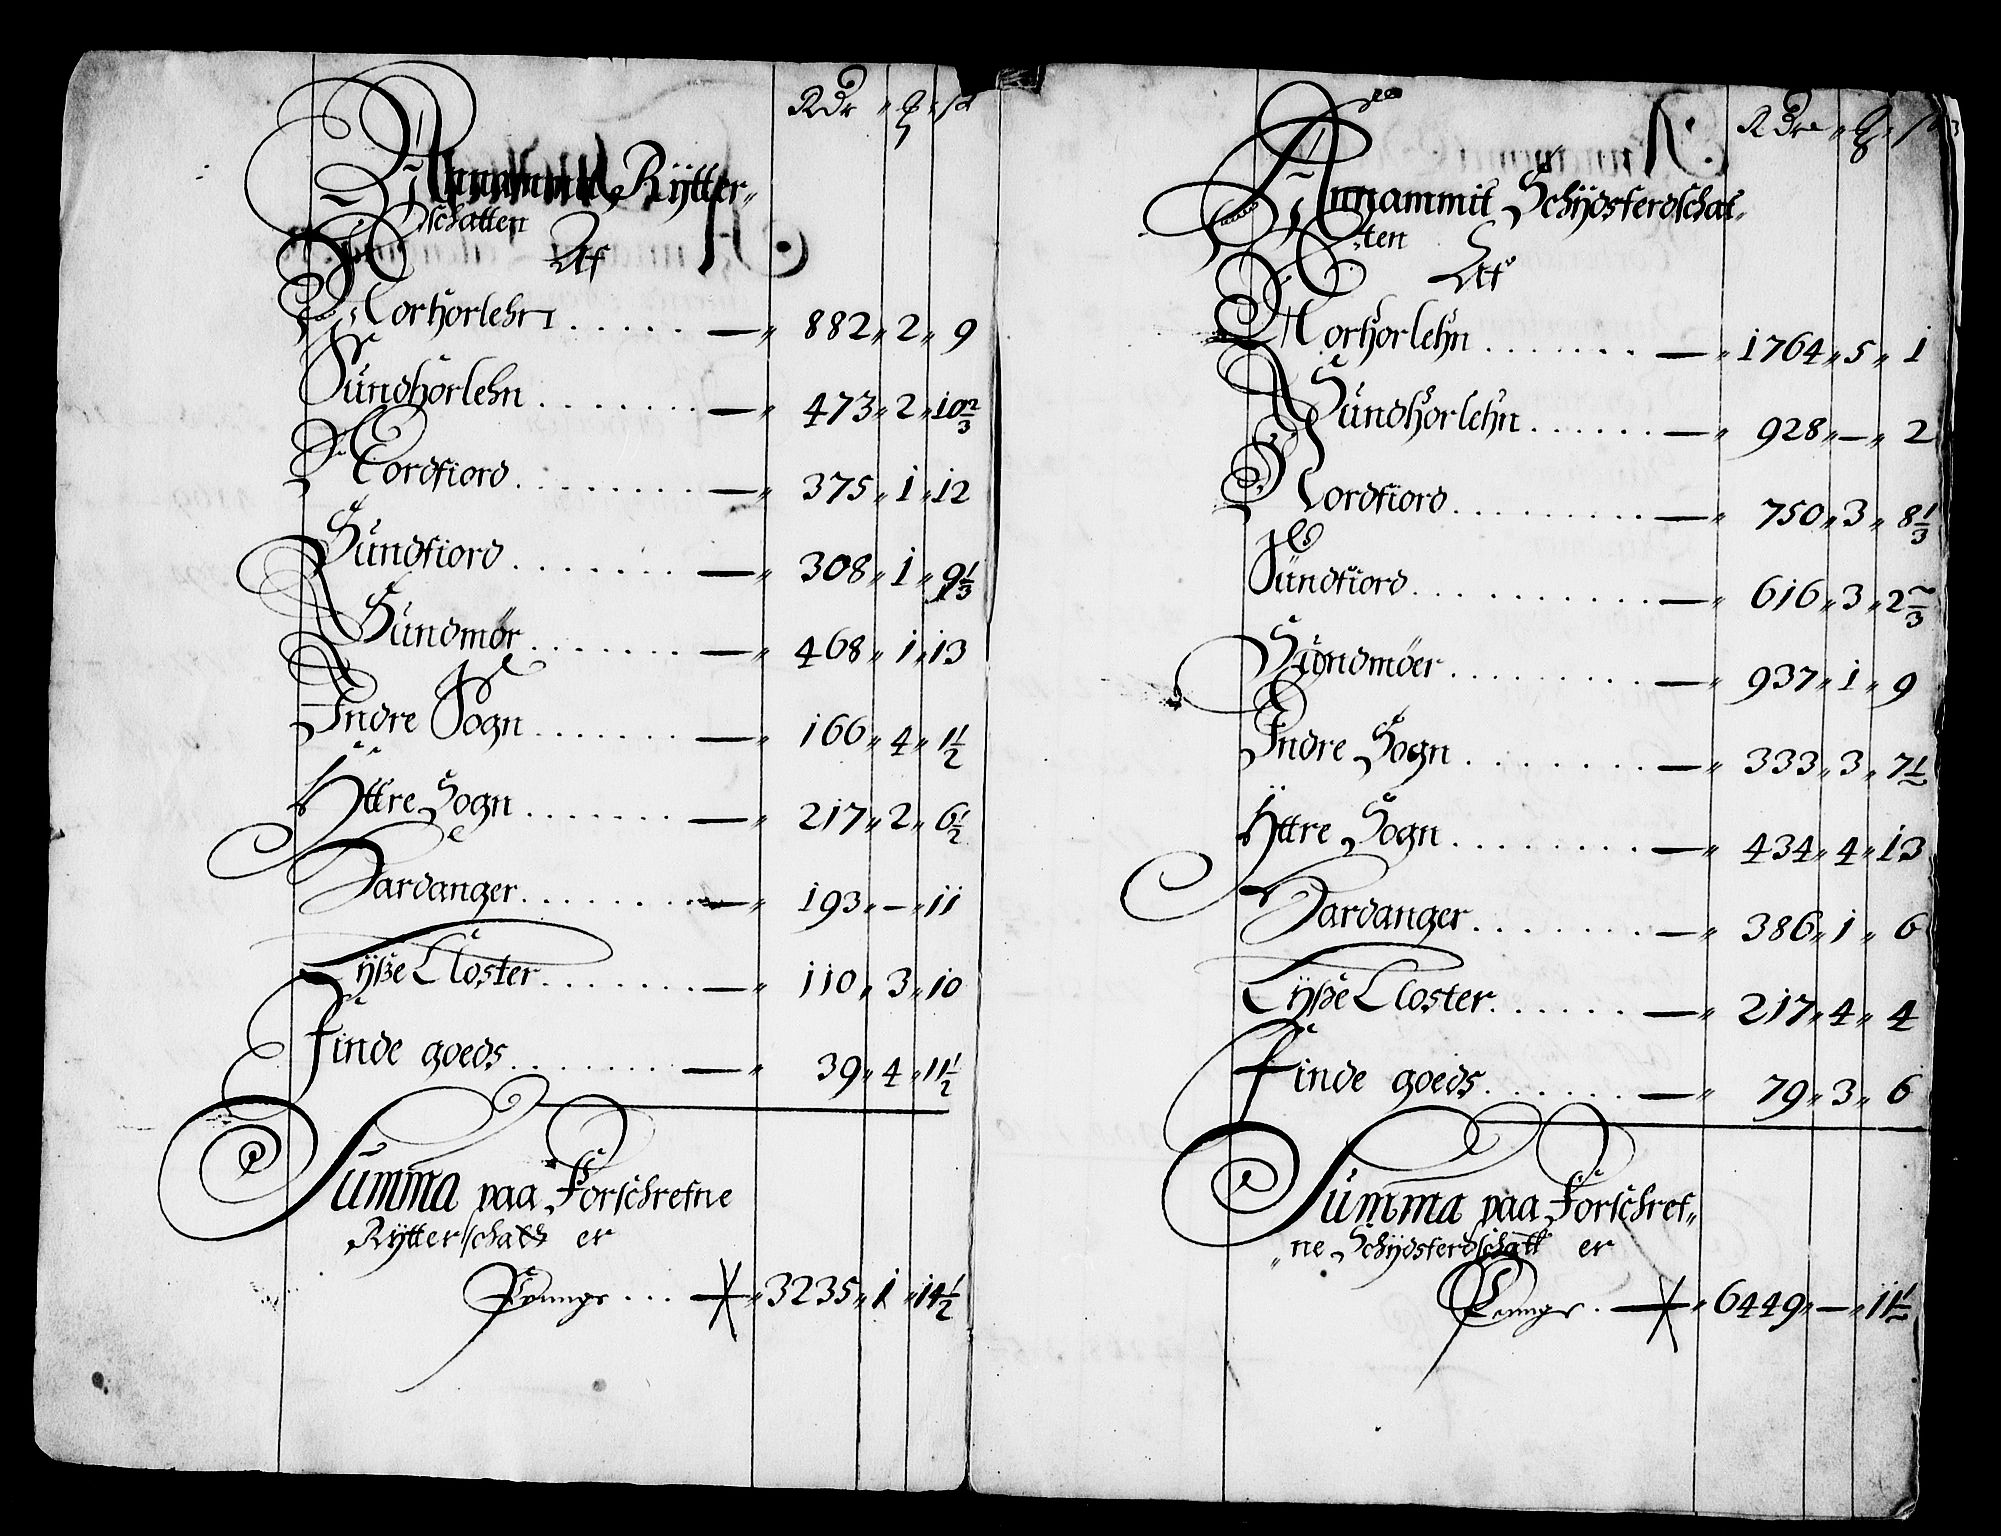 Rdr " ƍ " sz
Annammit Rÿtter„
schatten
Aff
Norhorlehn . . . . . . — „ 882 „ 2 „ 9
Sundhorlehn . . . . . . — „ 473 „ 2 „ 10 2/3
Nordfiord . . . . . . . — „ 375 „ 1 „ 12
Sundfiord . . . . . . . — „ 308 „ 1 „ 9 1/3
Sundmör . . . . . . — „ 468 „ 1 „ 13
Indre Sogn . . . . . . — „ 166 „ 4 „ 1 1/2
Ÿttre Sogn . . . . . . . — „ 217 „ 2 „ 6 1/2
Hardanger . . . . . . . — „ 193 „ — „ 11
Lÿsse Closter . . . . . . — „ 110 „ 3 „ 10
Finde goeds . . . . . . — „ 39 „ 4 „ 11 1/2
Summa paa Forschrefne
Rÿtterschatt er
Penninge . . . — „ 3235 „ 1 „ 14 1/2
Rdr " ƍ " sz
Annammit Schÿdsferdschat„
„ten Aff
Norhorlehn . . . . . . . — „ 1764 „ 5 „ 1
Sundhorlehn . . . . . . — „ 928 „ — „ 2
Nordfiord . . . . . . . . — „ 750 „ 3 „ 8 1/3
Sundfiord . . . . . . . . . — „ 616 „ 3 „ 2 2/3
Syndmöer . . . . . . . . — „ 937 „ 1 „ 9
Indre Sogn . . . . . . . — „ 333 „ 3 „ 7 1/2
Ÿttre Sogn . . . . . . . . — „ 434 „ 4 „ 13
Hardanger . . . . . . . — „ 386 „ 1 „ 6
Lÿsse Closter . . . . . . — „ 217 „ 4 „ 4
Finde goeds . . . . . . — „ 79 „ 3 „ 6
Summa paa Forschref„
„ne Schÿdsferdschatt er
Penninge . — „ 6449 „ — „ 11 1/2